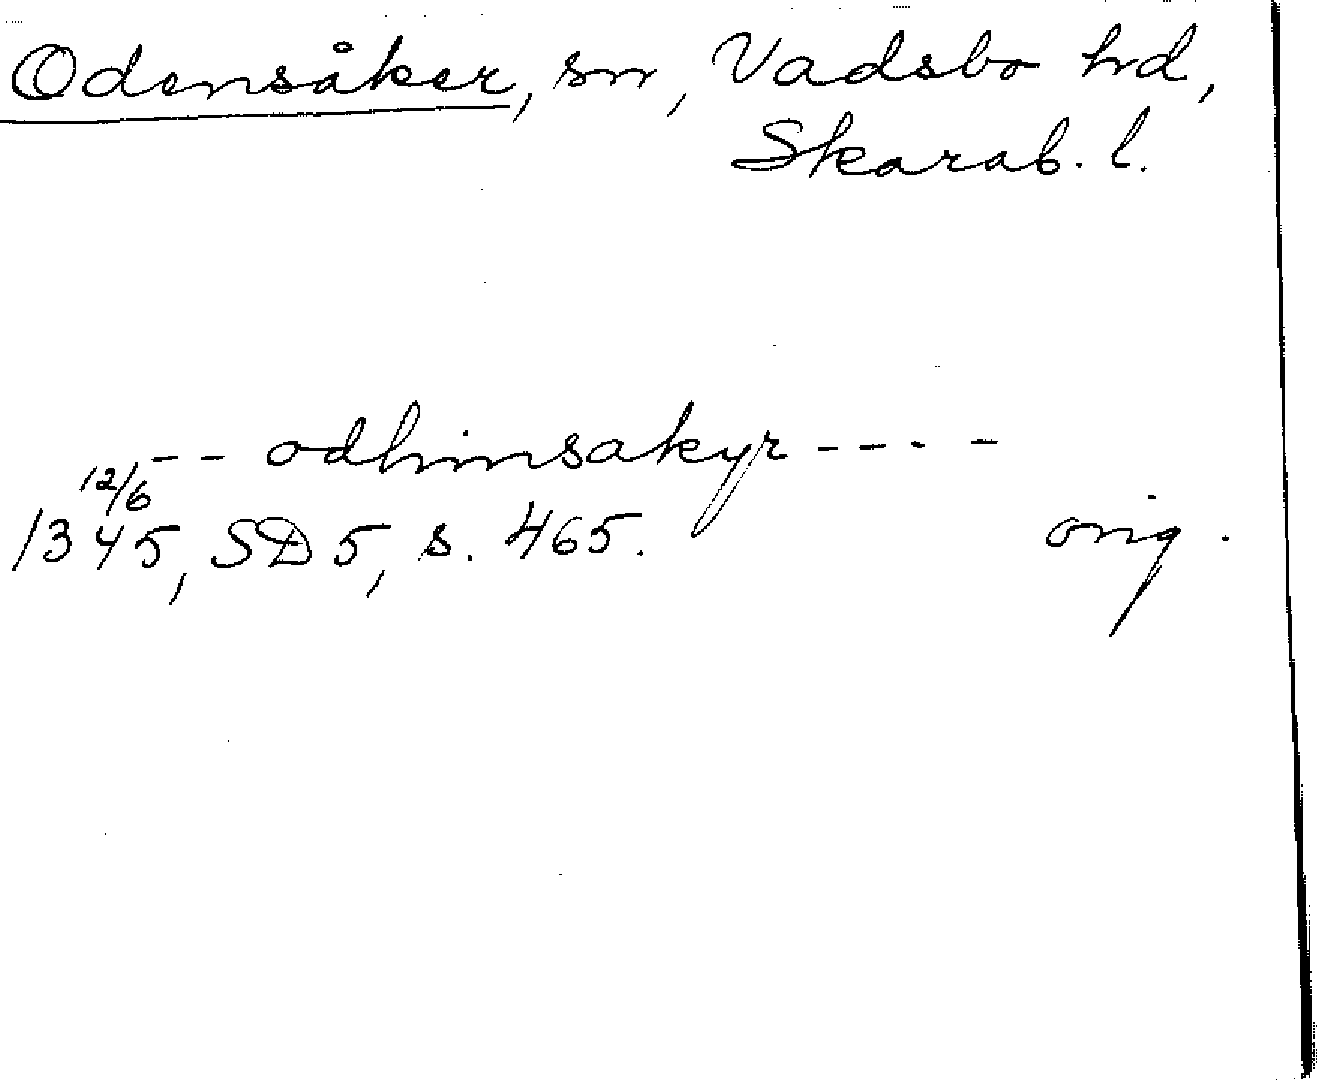 Odensåker, sn, Vadsbo hd,
Skarab. l.
-- odhinsakyr ----
12/6
1345, SD 5, s. 465. orig.